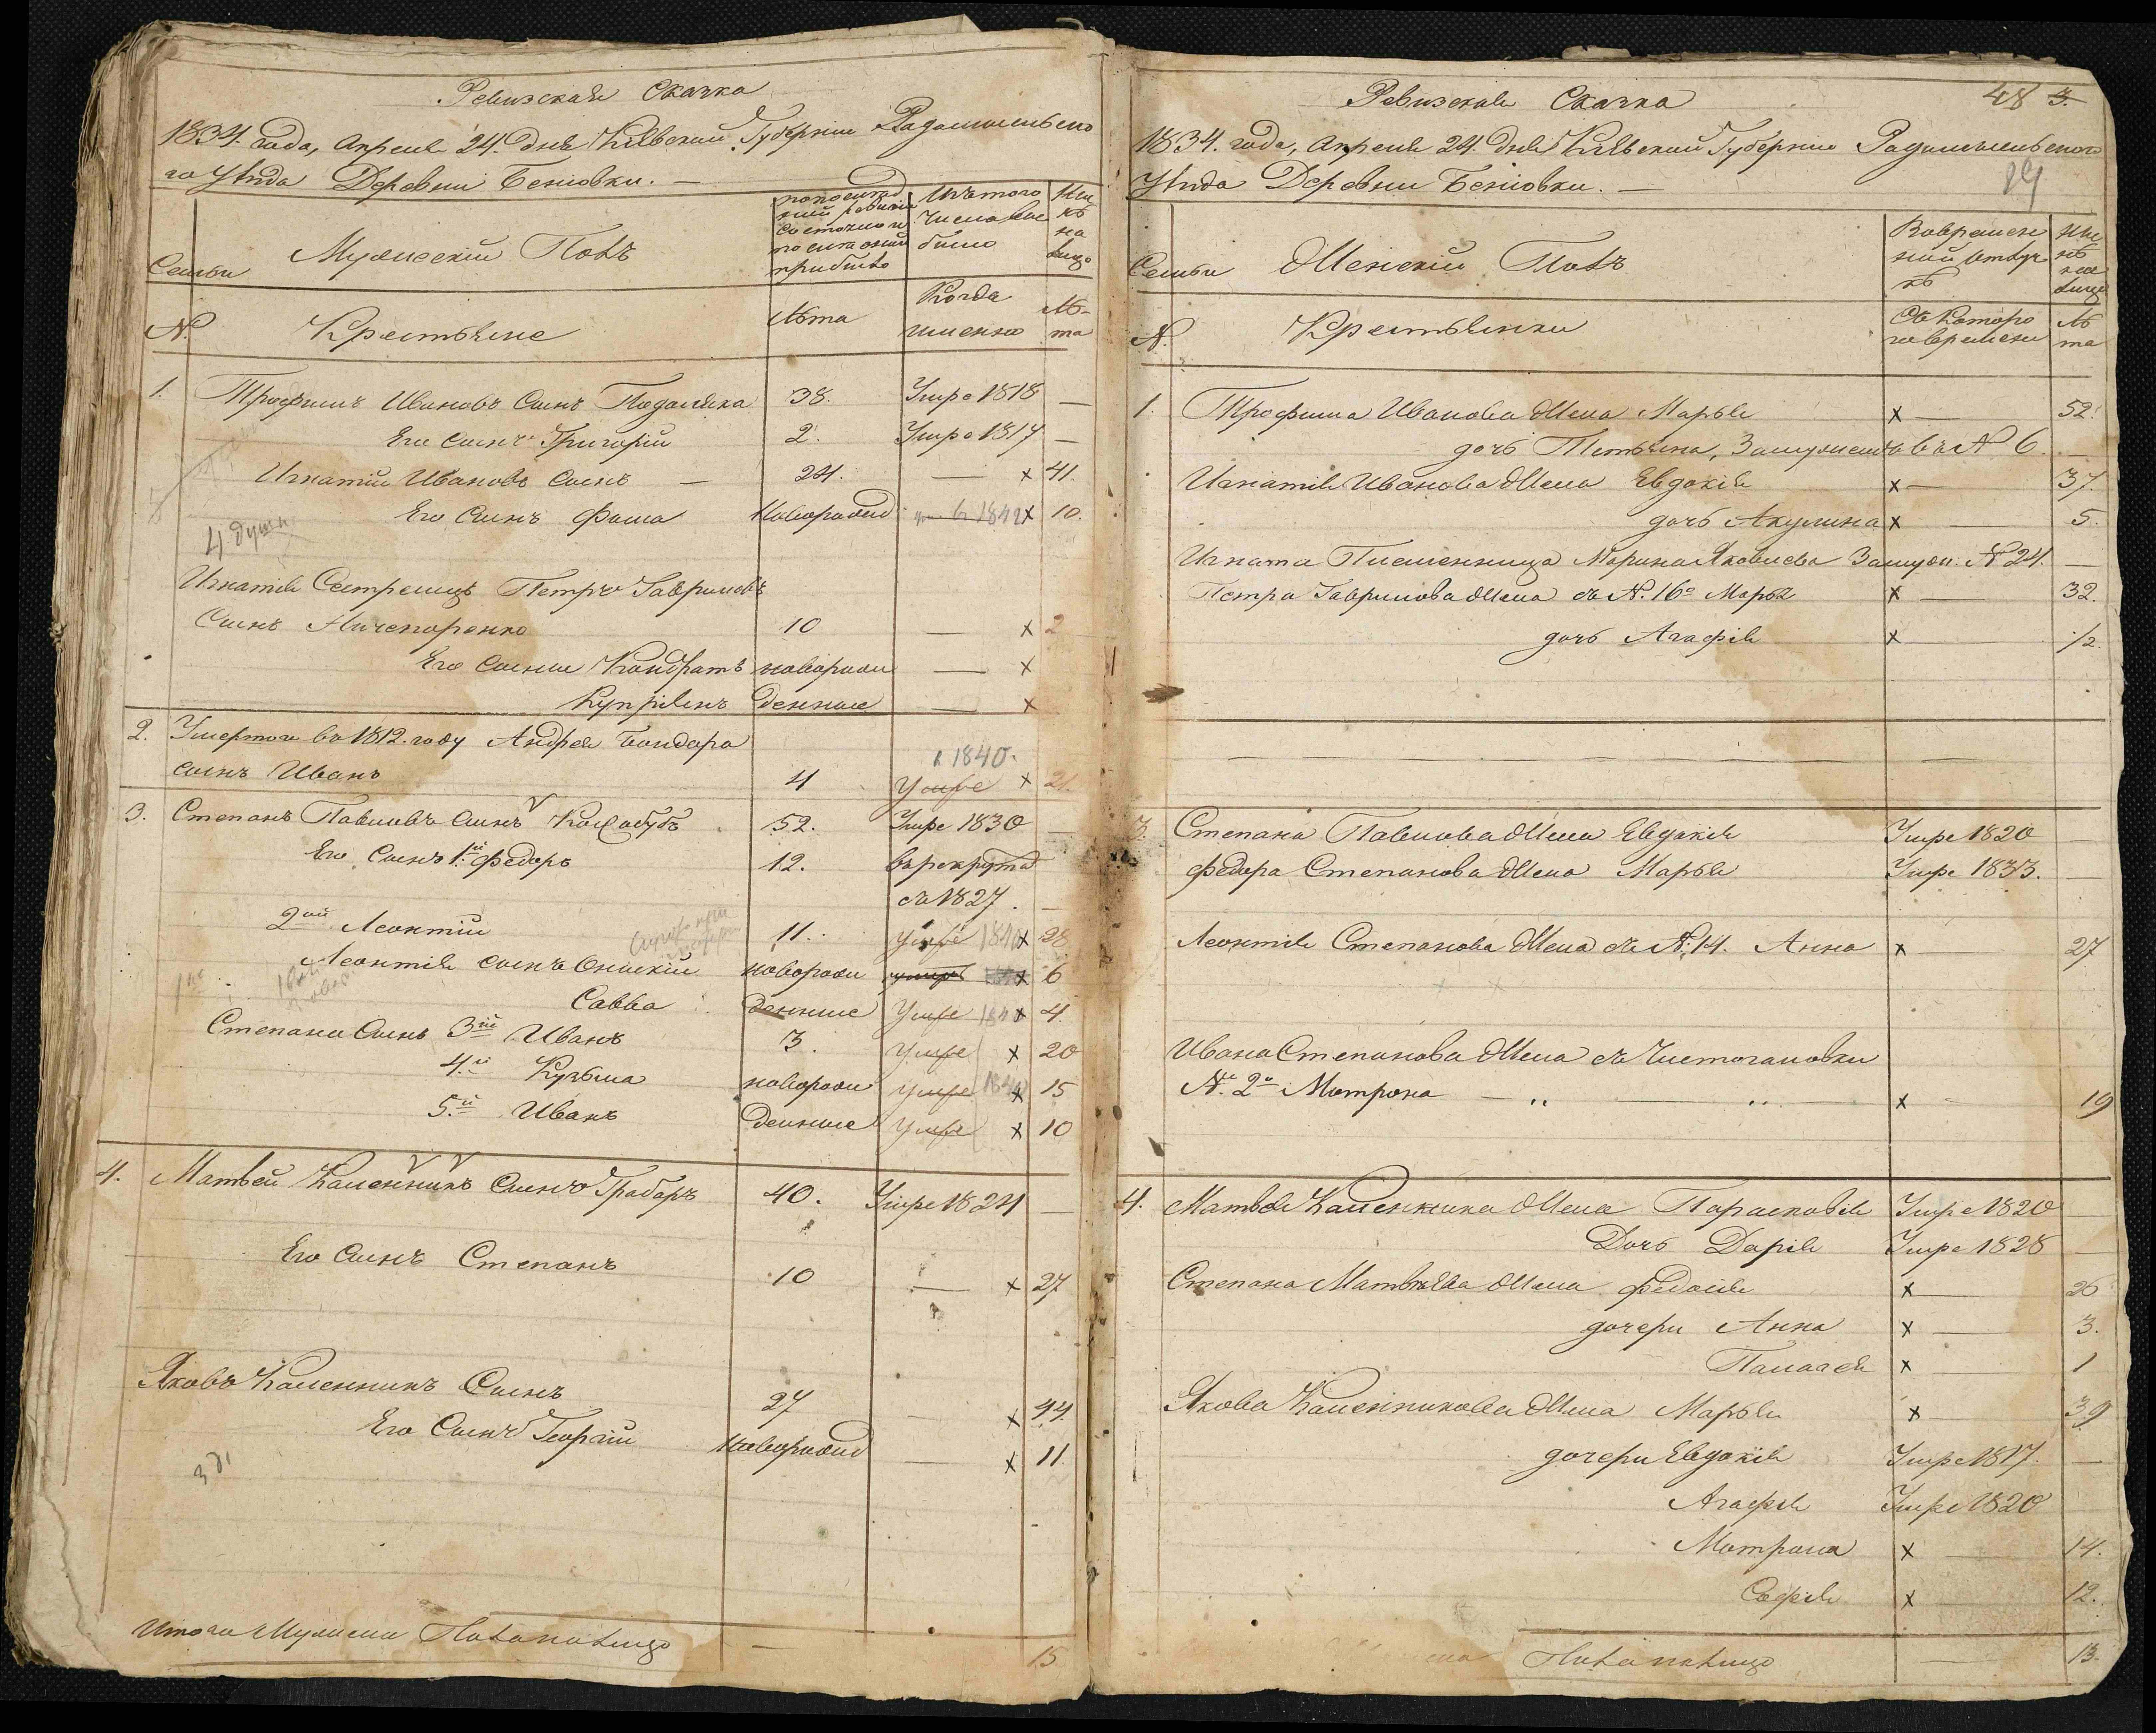 Ревизская Сказка
1834. года, Апреля 24. дня Кіевской Губерніи Радомысльска
го Уѣзда Деревни Беніовки. —
Семьи
Мужескій Полъ
по послѣд
ней ревизіи
состояло и
послѣ оной
прибыло
Изъ того
числа вы
было
Ны
нѣ
на
лицо
№.
Крестьяне
Лѣта
Когда
именно
Лѣ-
та
1. Трофимъ Ивановъ Сынъ Подоляка 38. Умре 1818 —
Его Сынъ Григорій 2. Умре 1817 —
Игнатій Ивановъ Сынъ — 24. — х 41.
Его Сынъ Фома Новорожд 1842 х 10.
4 души
Игнатія Сестренецъ Петръ Гавриловъ
Сынъ Ничепоренко 10 — х 2
Его Сыны Кондратъ новорож — х
Купріянъ денные — х
2. Умершого въ 1812. году Андрея Бондара
сынъ Иванъ 4 Умре х 21.
1840.
3. Степанъ Павловъ Сынъ 52. Умре 1830 —
Его Сынъ 1й Федоръ 12. въ рекрута
съ 1827. —
2ой Леонтій 11. Умре 1840 х 28
Леонтія сынъ Онискій новорож умре х 6
Савва денные Умре 184 х 4.
Степана Сынъ 3й Иванъ 3. Умре х 20
4.й Кузьма новорож Умре 184 х 15
5.й Иванъ денные Умре х 10
4. Матвей Каленникъ Сынъ Грабаръ 40. Умре 1824 —
Его Сынъ Степанъ 10 — х 27
Яковъ Каленникъ Сынъ 27 — х 44.
Его Сынъ Георгій Новорожд — х 11.
3 д
Итого Мужеска Пола на лицо — 15
48 3.
Ревизская Сказка
1834. года, Апреля 24. дня Кіевской Губерніи Радомысльского
Уѣзда Деревни Беніовки. —
19
Семьи
Женскій Полъ
Во времен
ной отлуч
кѣ
Ны
нѣ
на
лицо
№.
Крестьянки
Съ Которо
го времени
Лѣ
та
1. Трофима Иванова Жена Марья х — 52.
дочь Тетьяна, Замужемъ въ № 6 —
Игнатія Иванова Жена Евдокія х — 37.
дочь Акулина х — 5.
Игната Племенница Марина Яковлева Замуж. № 24. —
Петра Гаврилова Жена съ №. 16о Марья х — 32.
дочь Агафія х — 1/2.
3. Степана Павлова Жена Евдокія Умре 1820 —
Федора Степанова Жена Марья Умре 1833. —
Леонтія Степанова Жена съ №. 14. Анна х — 27
Ивана Степанова Жена съ Чистогаловки
№. 2о Мотрона — „ — „ — х 19
4. Матвея Каленника Жена Парасковія Умре 1820
Дочь Дарія Умре 1828 —
Степана Матвѣева Жена Федосія х — 26
дочери Анна х — 3.
Палагея х — 1
Якова Каленникова Жена Марья х — 39
дочери Евдокія Умре 1817. —
Агафія Умре 1820
Мотрона х — 14.
Софія х — 12.
Пола на лицо — 13.